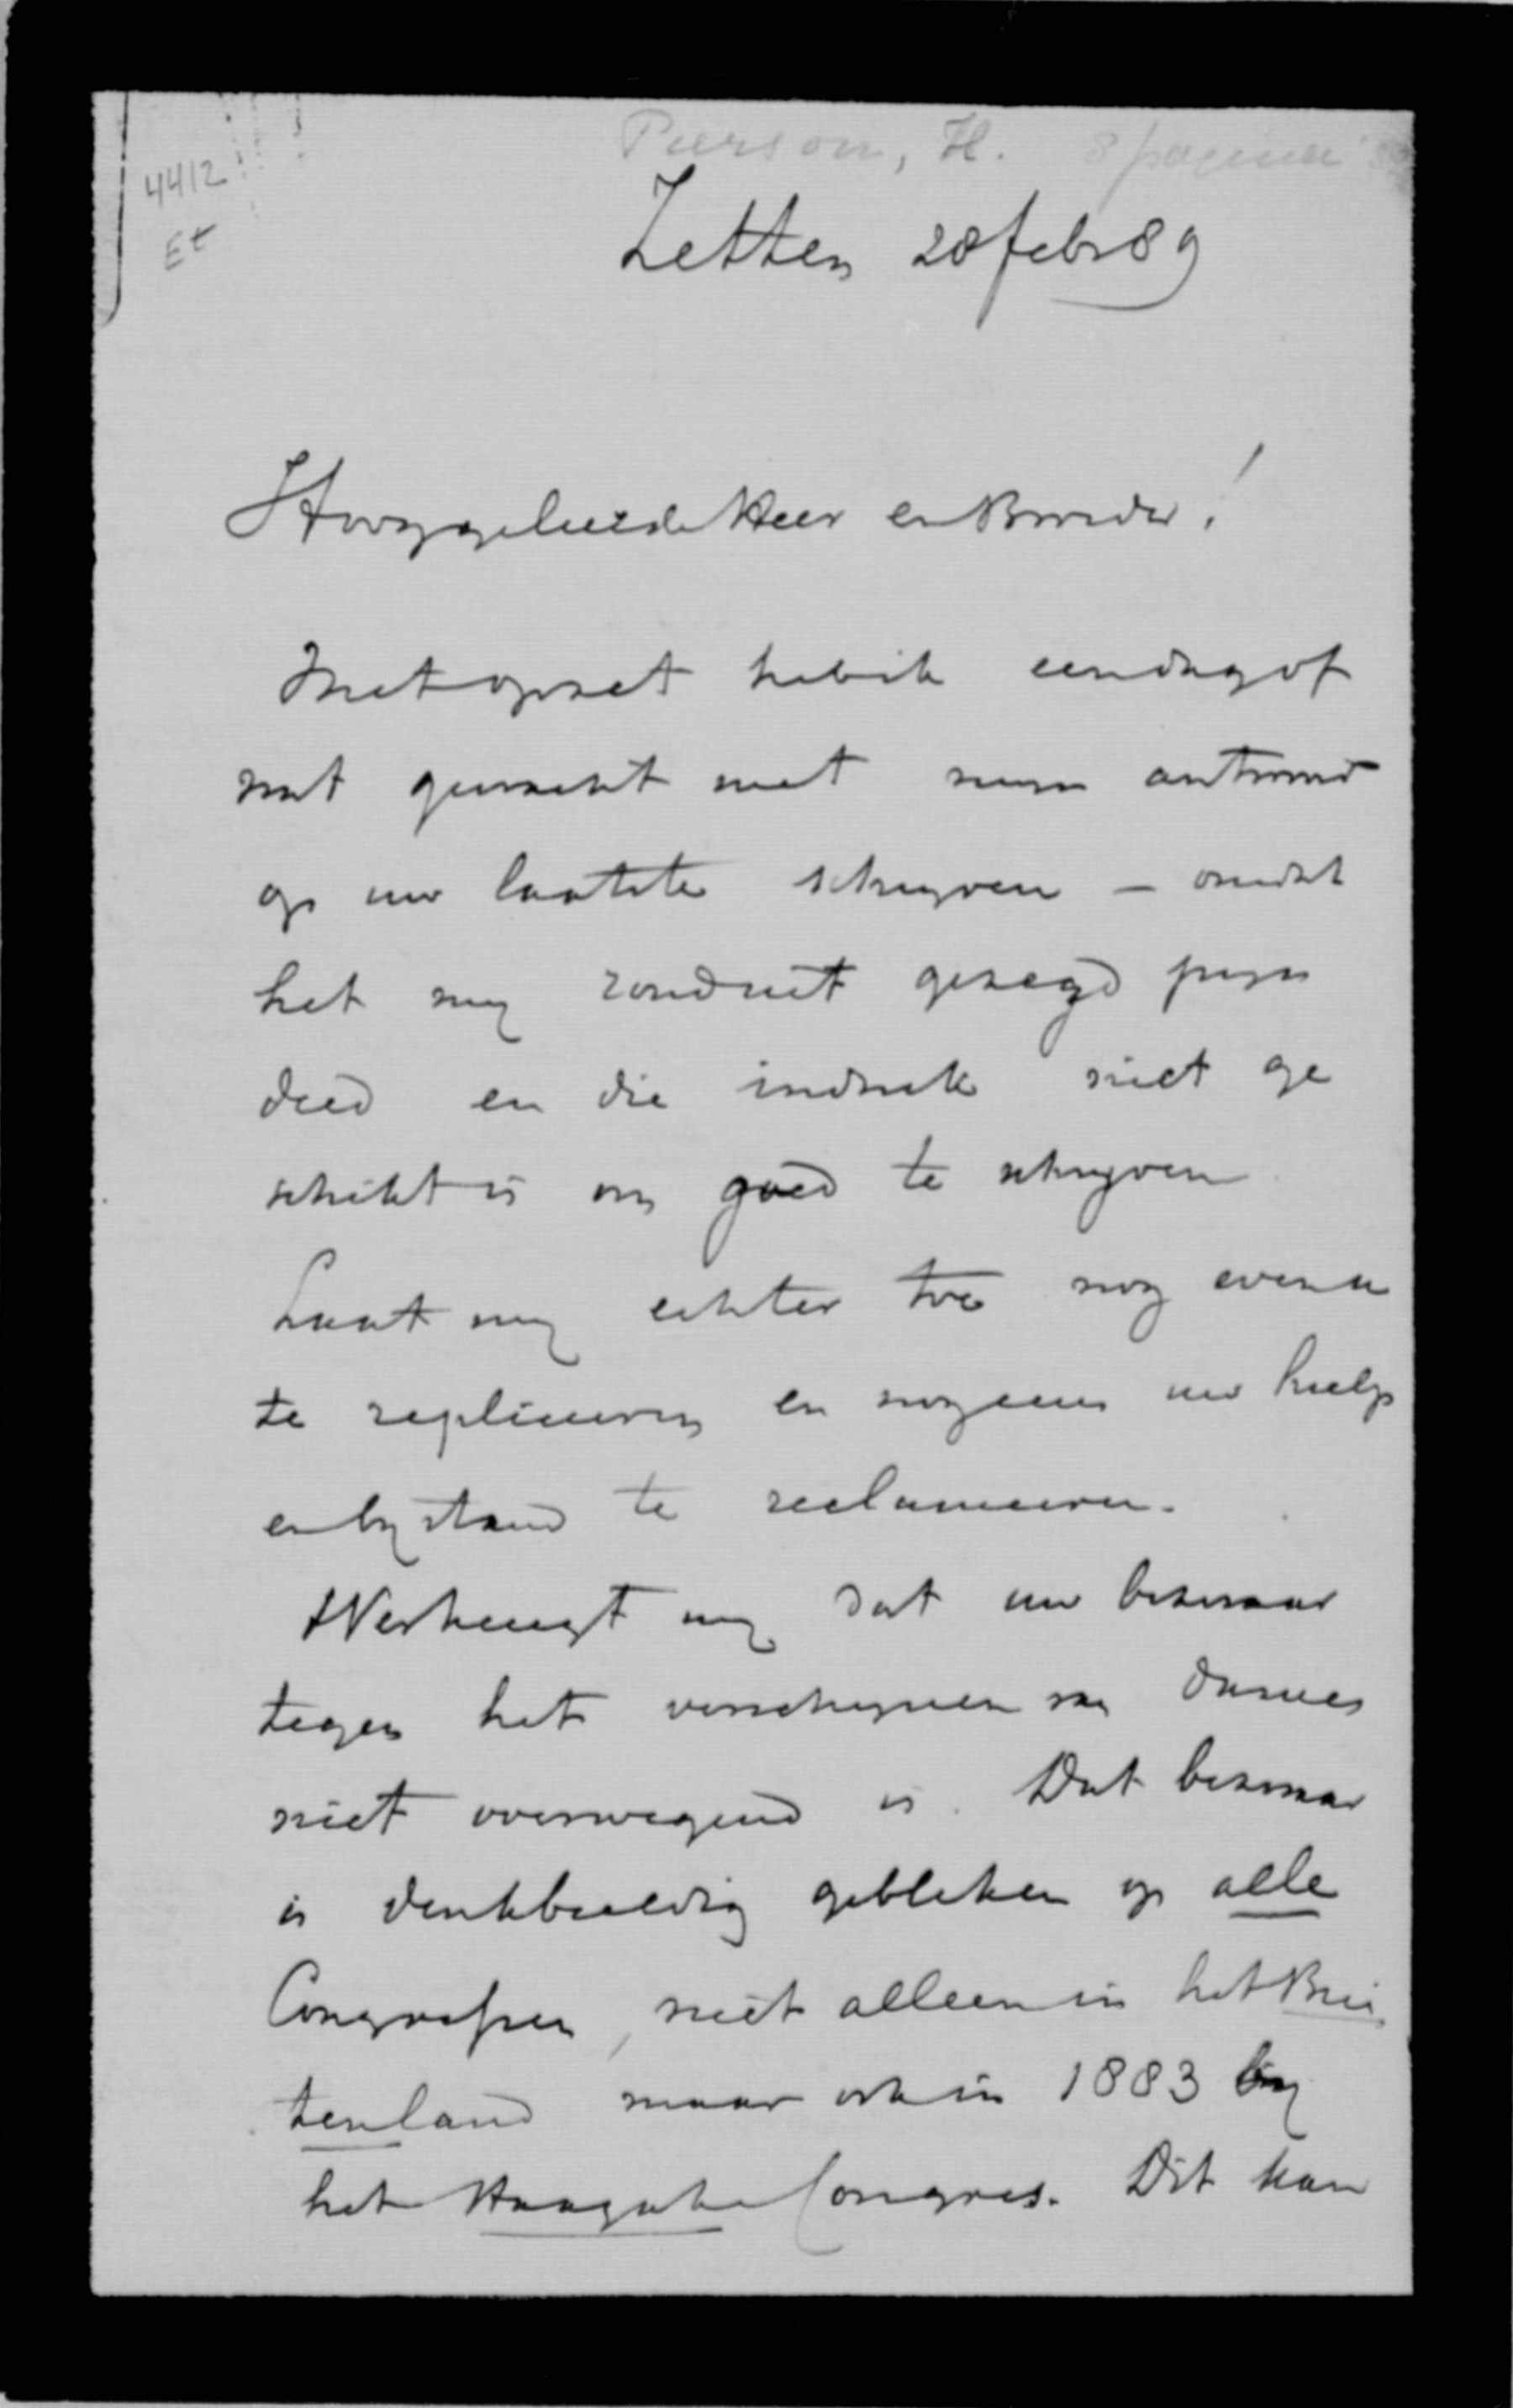 4412
Et
Pierson, H. 8 pagina's
Zetten 28 febr 89
Hooggeleerde Heer en Broeder!
Met opzet heb ik een dag of
wat gewacht met mijn antwoord
op uw laatste schrijven – omdat
het mij ronduit gezegd pijn
deed en die indruk niet ge
schikt is om goed te schrijven
Laat mij echter toe nog even u
te repliceeren en nog eens uw hulp
en bystand te reclameeren.
Het heugt mij dat uw bezwaar
tegen het verschijnen van dames
niet overwegend is. Dat bezwaar
is denkbeeldig gebleken op alle
Congressen, niet alleen in het Bui
tenland maar ook in 1883 bij
het Haagsche Congres. Dit kan